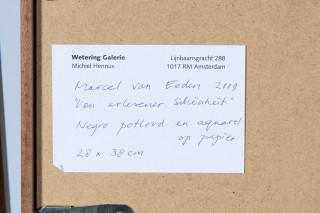 Wetering Galerie
Michiel Hennus
Lijnbaansgracht 288
1017 RM Amsterdam
Marcel van Eeden 2009
"Von erlesener Schönheit"
Negro potlood en aquarel
op papier
28 x 38 cm